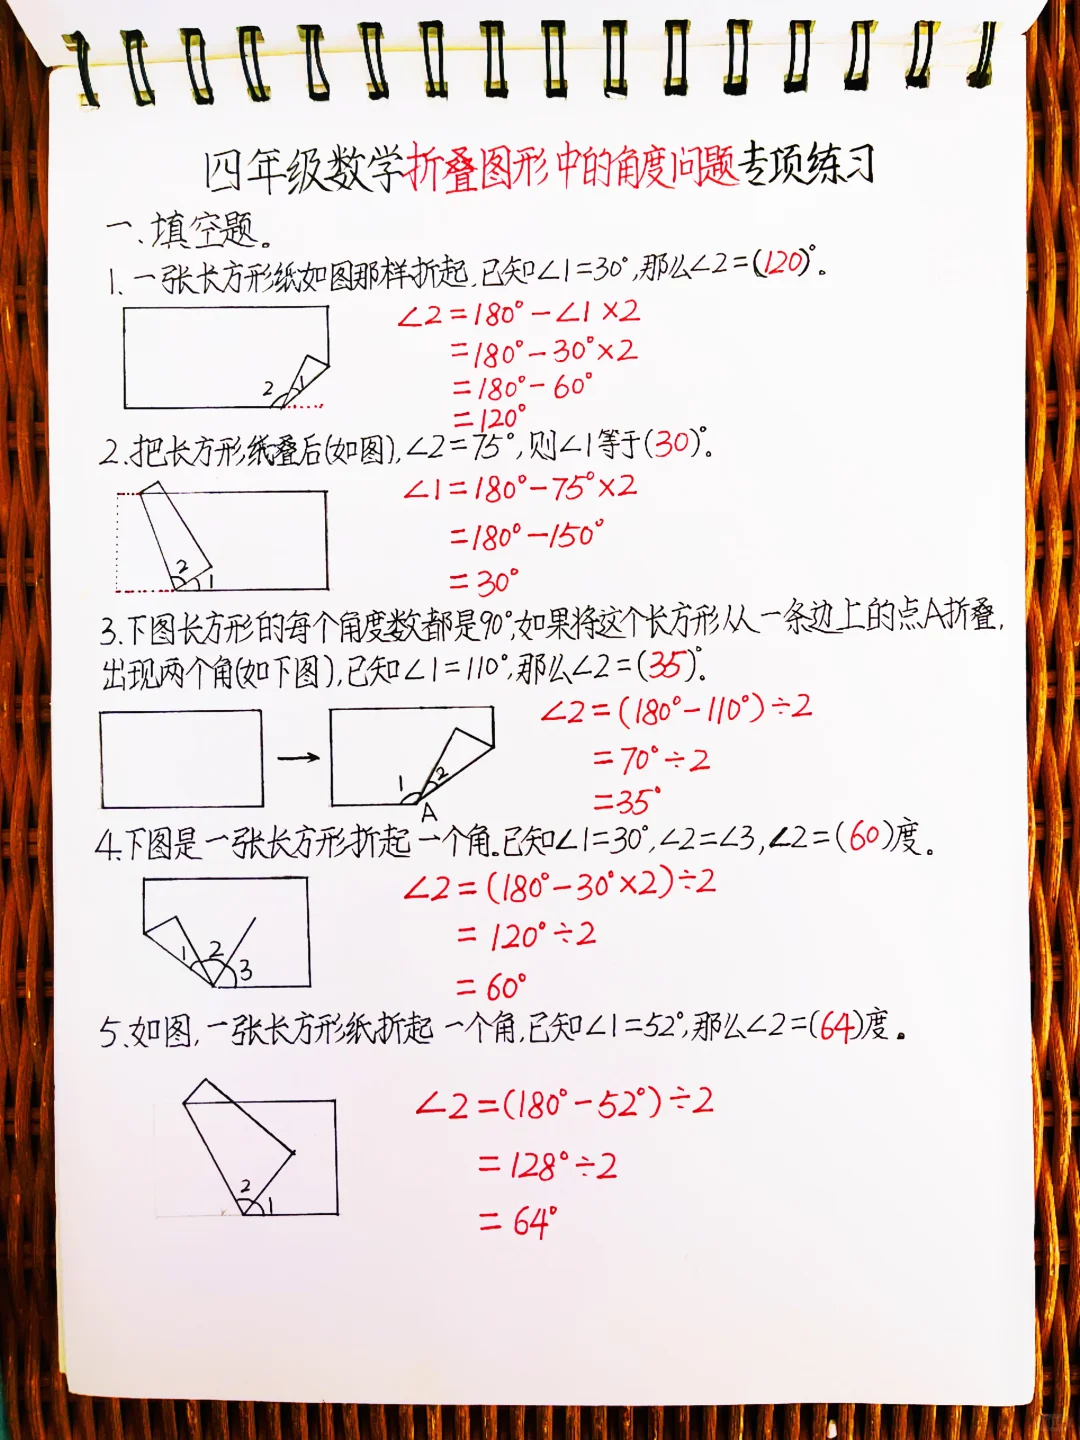 四年级数学折叠图形中的角度问题专项练习
一、填空题。
1.一张长方形纸如图那样折起,已知∠1=30°,那么∠2=(120)°。
∠2=180°-∠1×2
=180°-30°×2
=180°-60°
=120°
2 1
2.把长方形纸叠后(如图),∠2=75°,则∠1等于(30)°。
∠1=180°-75°×2
=180°-150°
=30°
2 1
3.下图长方形的每个角度数都是90°,如果将这个长方形从一条边上的点A折叠,
出现两个角(如下图),已知∠1=110°,那么∠2=(35)°。
∠2=(180°-110°)÷2
=70°÷2
=35°
1 2
A
4.下图是一张长方形折起一个角。已知∠1=30°,∠2=∠3,∠2=(60)度。
∠2=(180°-30°×2)÷2
=120°÷2
=60°
1 2 3
5.如图,一张长方形纸折起一个角,已知∠1=52°,那么∠2=(64)度。
∠2=(180°-52°)÷2
=128°÷2
=64°
2 1